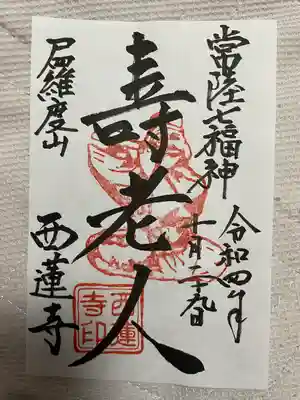 常陸七福神
令和四年
十月二十九日
壽老人
尸羅摩山
西蓮寺
西蓮
寺印